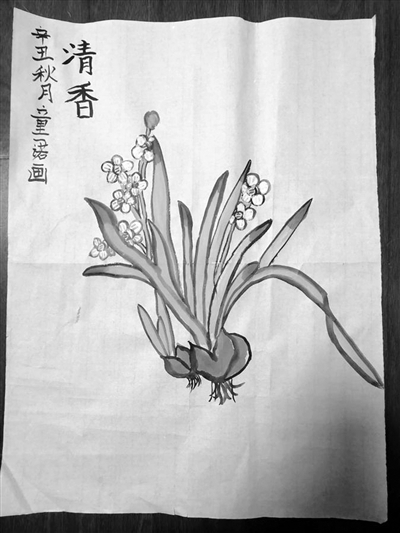 清香
辛丑秋月童诺画